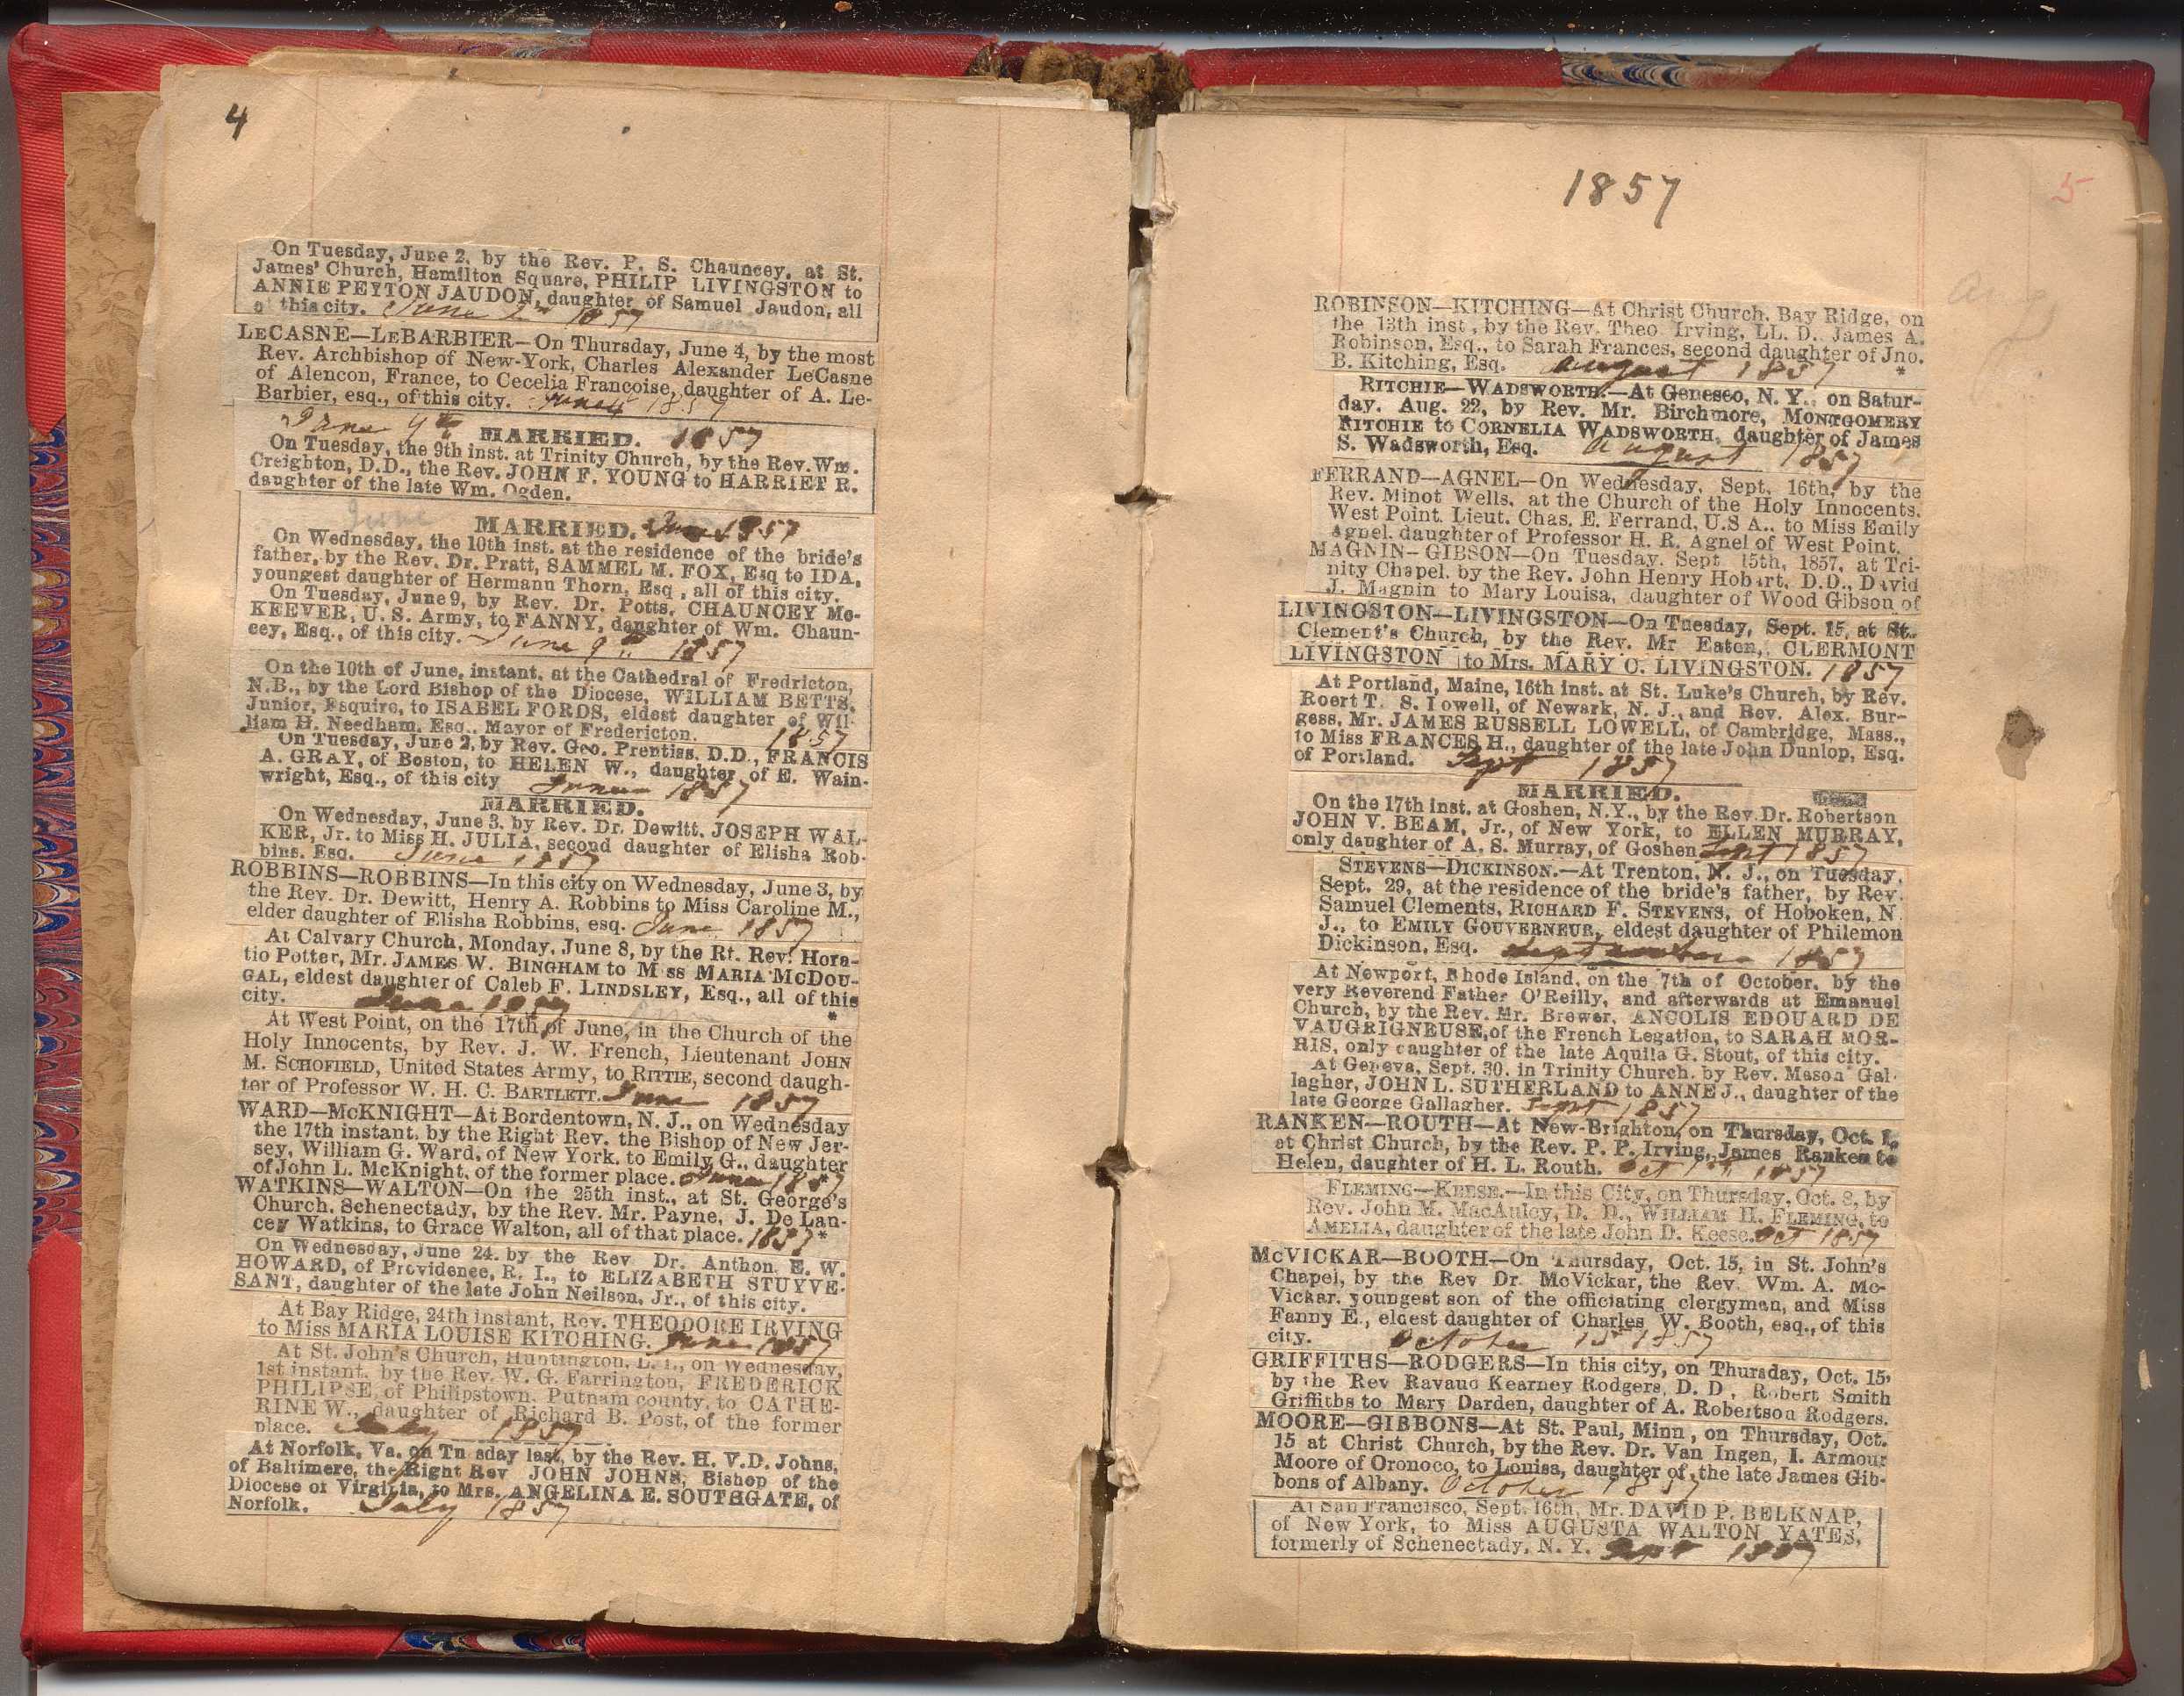 4
On Tuesday, June 2, by the Rev. P. S. Chauncey, at St.
James' Church, Hamilton Square, PHILIP LIVINGSTON to
ANNIE PEYTON JAUDON, daughter of Samuel Jaudon, all
of this city. June 2nd 1857
LECASNE—LEBARBIER—On Thursday, June 4, by the most
Rev. Archbishop of New-York, Charles Alexander LeCasne
of Alencon, France, to Cecelia Françoise, daughter of A. Le-
Barbier, esq., of this city. June 4 1857
June 9th MARRIED. 1857
On Tuesday, the 9th inst. at Trinity Church, by the Rev. Wm.
Creighton, D.D., the Rev. JOHN F. YOUNG to HARRIET R.
daughter of the late Wm. Ogden.
June
MARRIED. June 1857
On Wednesday, the 10th inst. at the residence of the bride's
father, by the Rev. Dr. Pratt, SAMMEL M. FOX, Esq to IDA,
youngest daughter of Hermann Thorn, Esq, all of this city.
On Tuesday, June 9, by Rev. Dr. Potts, CHAUNCEY Mc-
KEEVER, U. S. Army, to FANNY, daughter of Wm. Chaun-
cey, Esq., of this city. June 9th 1857
On the 10th of June, instant, at the Cathedral of Fredricton,
N.B., by the Lord Bishop of the Diocese, WILLIAM BETTS,
Junior, Esquire, to ISABEL FORDS, eldest daughter of Wil-
liam H. Needham, Esq., Mayor of Fredericton. 1857
On Tuesday, June 2, by Rev. Geo. Prentiss, D.D., FRANCIS
A. GRAY, of Boston, to HELEN W., daughter of E. Wain-
wright, Esq., of this city June 1857
MARRIED.
On Wednesday, June 3, by Rev. Dr. Dewitt, JOSEPH WAL-
KER, Jr. to Miss H. JULIA, second daughter of Elisha Rob-
bins, Esq. June 1857
ROBBINS—ROBBINS—In this city on Wednesday, June 3, by
the Rev. Dr. Dewitt, Henry A. Robbins to Miss Caroline M.,
elder daughter of Elisha Robbins, esq. June 1857
At Calvary Church, Monday, June 8, by the Rt. Rev. Hora-
tio Potter, Mr. JAMES W. BINGHAM to Miss MARIA MCDOU-
GAL, eldest daughter of Caleb F. LINDSLEY, Esq., all of this
city. June 1857 *
At West Point, on the 17th of June, in the Church of the
Holy Innocents, by Rev. J. W. French, Lieutenant JOHN
M. SCHOFIELD, United States Army, to RITTIE, second daugh-
ter of Professor W. H. C. BARTLETT. June 1857
WARD—McKNIGHT—At Bordentown, N. J., on Wednesday
the 17th instant, by the Right Rev. the Bishop of New Jer-
sey, William G. Ward, of New York, to Emily G., daughter
of John L. McKnight, of the former place. June 1857 *
WATKINS—WALTON—On the 25th inst., at St. George's
Church, Schenectady, by the Rev. Mr. Payne, J. De Lan-
cey Watkins, to Grace Walton, all of that place. 1857 *
On Wednesday, June 24, by the Rev. Dr. Anthon, E. W.
HOWARD, of Providence, R. I., to ELIZABETH STUYVE-
SANT, daughter of the late John Neilson, Jr., of this city.
At Bay Ridge, 24th instant, Rev. THEODORE IRVING
to Miss MARIA LOUISE KITCHING. June 1857
At St. John's Church, Huntington, L. I., on Wednesday,
1st instant, by the Rev. W. G. Farrington, FREDERICK
PHILIPSE, of Philipstown, Putnam county, to CATHE-
RINE W., daughter of Richard B. Post, of the former
place. July 1857
At Norfolk, Va. on Tu sday last, by the Rev. H. V.D. Johns,
of Baltimere, the Right Rev JOHN JOHNS, Bishop of the
Diocese of Virginia, to Mrs. ANGELINA E. SOUTHGATE, of
Norfolk. July 1857
1857
5
Aug
ROBINSON—KITCHING—At Christ Church, Bay Ridge, on
the 13th inst., by the Rev. Theo. Irving, LL. D., James A.
Robinson, Esq., to Sarah Frances, second daughter of Jno.
B. Kitching, Esq. August 1857 *
RITCHIE—WADSWORTH.—At Geneseo, N. Y., on Satur-
day, Aug. 22, by Rev. Mr. Birchmore, MONTGOMERY
RITCHIE to CORNELIA WADSWORTH, daughter of James
S. Wadsworth, Esq. August 1857
FERRAND—AGNEL—On Wednesday, Sept. 16th, by the
Rev. Minot Wells, at the Church of the Holy Innocents,
West Point, Lieut. Chas. E. Ferrand, U.S A., to Miss Emily
Agnel, daughter of Professor H. R. Agnel of West Point.
MAGNIN—GIBSON—On Tuesday, Sept 15th, 1857, at Tri-
nity Chapel, by the Rev. John Henry Hobart, D.D., David
J. Magnin to Mary Louisa, daughter of Wood Gibson of
LIVINGSTON—LIVINGSTON—On Tuesday, Sept. 15, at St.
Clement's Church, by the Rev. Mr Eaton, CLERMONT
LIVINGSTON to Mrs. MARY C. LIVINGSTON. 1857
At Portland, Maine, 16th inst. at St. Luke's Church, by Rev.
Roert T. S. Lowell, of Newark, N. J., and Rev. Alex. Bur-
gess, Mr. JAMES RUSSELL LOWELL, of Cambridge, Mass.,
to Miss FRANCES H., daughter of the late John Dunlop, Esq.
of Portland. Sept 1857
MARRIED.
On the 17th inst. at Goshen, N.Y., by the Rev. Dr. Robertson
JOHN V. BEAM, Jr., of New York, to ELLEN MURRAY,
only daughter of A. S. Murray, of Goshen Sept 1857
STEVENS—DICKINSON.—At Trenton, N. J., on Tuesday,
Sept. 29, at the residence of the bride's father, by Rev.
Samuel Clements, RICHARD F. STEVENS, of Hoboken, N.
J., to EMILY GOUVERNEUR, eldest daughter of Philemon
Dickinson, Esq. September 1857
At Newport, Rhode Island, on the 7th of October, by the
very Reverend Father O'Reilly, and afterwards at Emanuel
Church, by the Rev. Mr. Brewer, ANCOLIS EDOUARD DE
VAUGRIGNEUSE, of the French Legation, to SARAH MOR-
RIS, only daughter of the late Aquila G. Stout, of this city.
At Geneva, Sept. 30, in Trinity Church, by Rev. Mason Gal-
lagher, JOHN L. SUTHERLAND to ANNE J., daughter of the
late George Gallagher. Sept 1857
RANKEN—ROUTH—At New-Brighton, on Thursday, Oct. 1,
at Christ Church, by the Rev. P. P. Irving, James Ranken to
Helen, daughter of H. L. Routh. Oct 1st 1857
FLEMING—KEESE.—In this City, on Thursday, Oct. 8, by
Rev. John M. MacAuley, D. D., WILLIAM H. FLEMING, to
AMELIA, daughter of the late John D. Keese. Oct 1857
McVICKAR—BOOTH—On Thursday, Oct. 15, in St. John's
Chapel, by the Rev Dr. McVickar, the Rev. Wm. A. Mc-
Vickar, youngest son of the officiating clergyman, and Miss
Fanny E., eldest daughter of Charles W. Booth, esq., of this
city. October 15 1857
GRIFFITHS—RODGERS—In this city, on Thursday, Oct. 15,
by the Rev Ravaud Kearney Rodgers, D. D., Robert Smith
Griffiths to Mary Darden, daughter of A. Robertson Rodgers.
MOORE—GIBBONS—At St. Paul, Minn, on Thursday, Oct.
15 at Christ Church, by the Rev. Dr. Van Ingen, I. Armour
Moore of Oronoco, to Louisa, daughter of the late James Gib-
bons of Albany. October 1857
At San Francisco, Sept. 16th, Mr. DAVID P. BELKNAP,
of New York, to Miss AUGUSTA WALTON YATES,
formerly of Schenectady, N. Y. Sept 1857